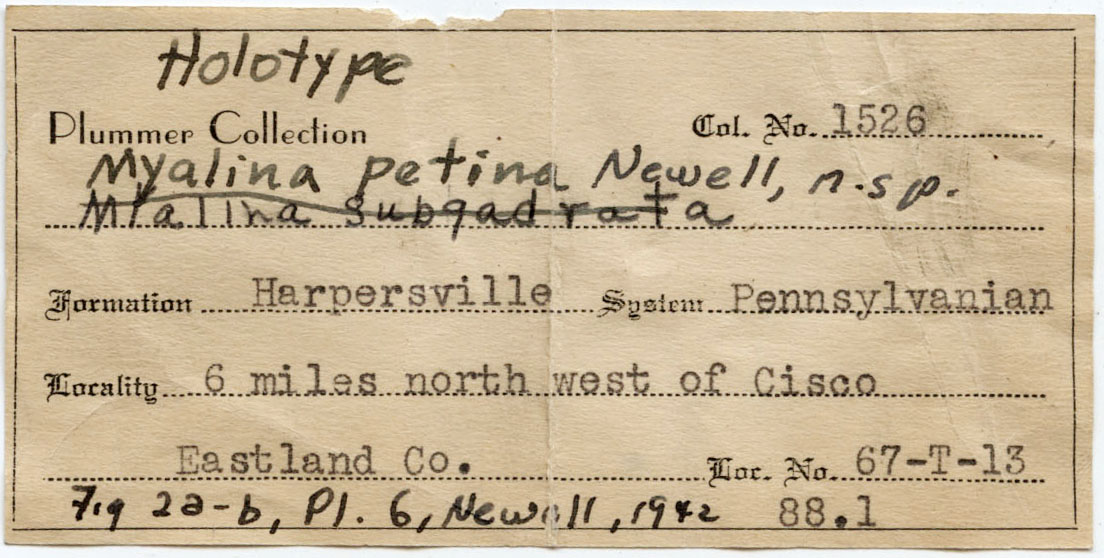 Holotype
Plummer Collection Col. No. 1526
Myalina petina Newell, n.sp.
Mialina subqadrata
Formation Harpersville System Pennsylvanian
Locality 6 miles north west of Cisco
Eastland Co. Loc. No. 67-T-13
Fig 2a-b, Pl. 6, Newell, 1942 88.1